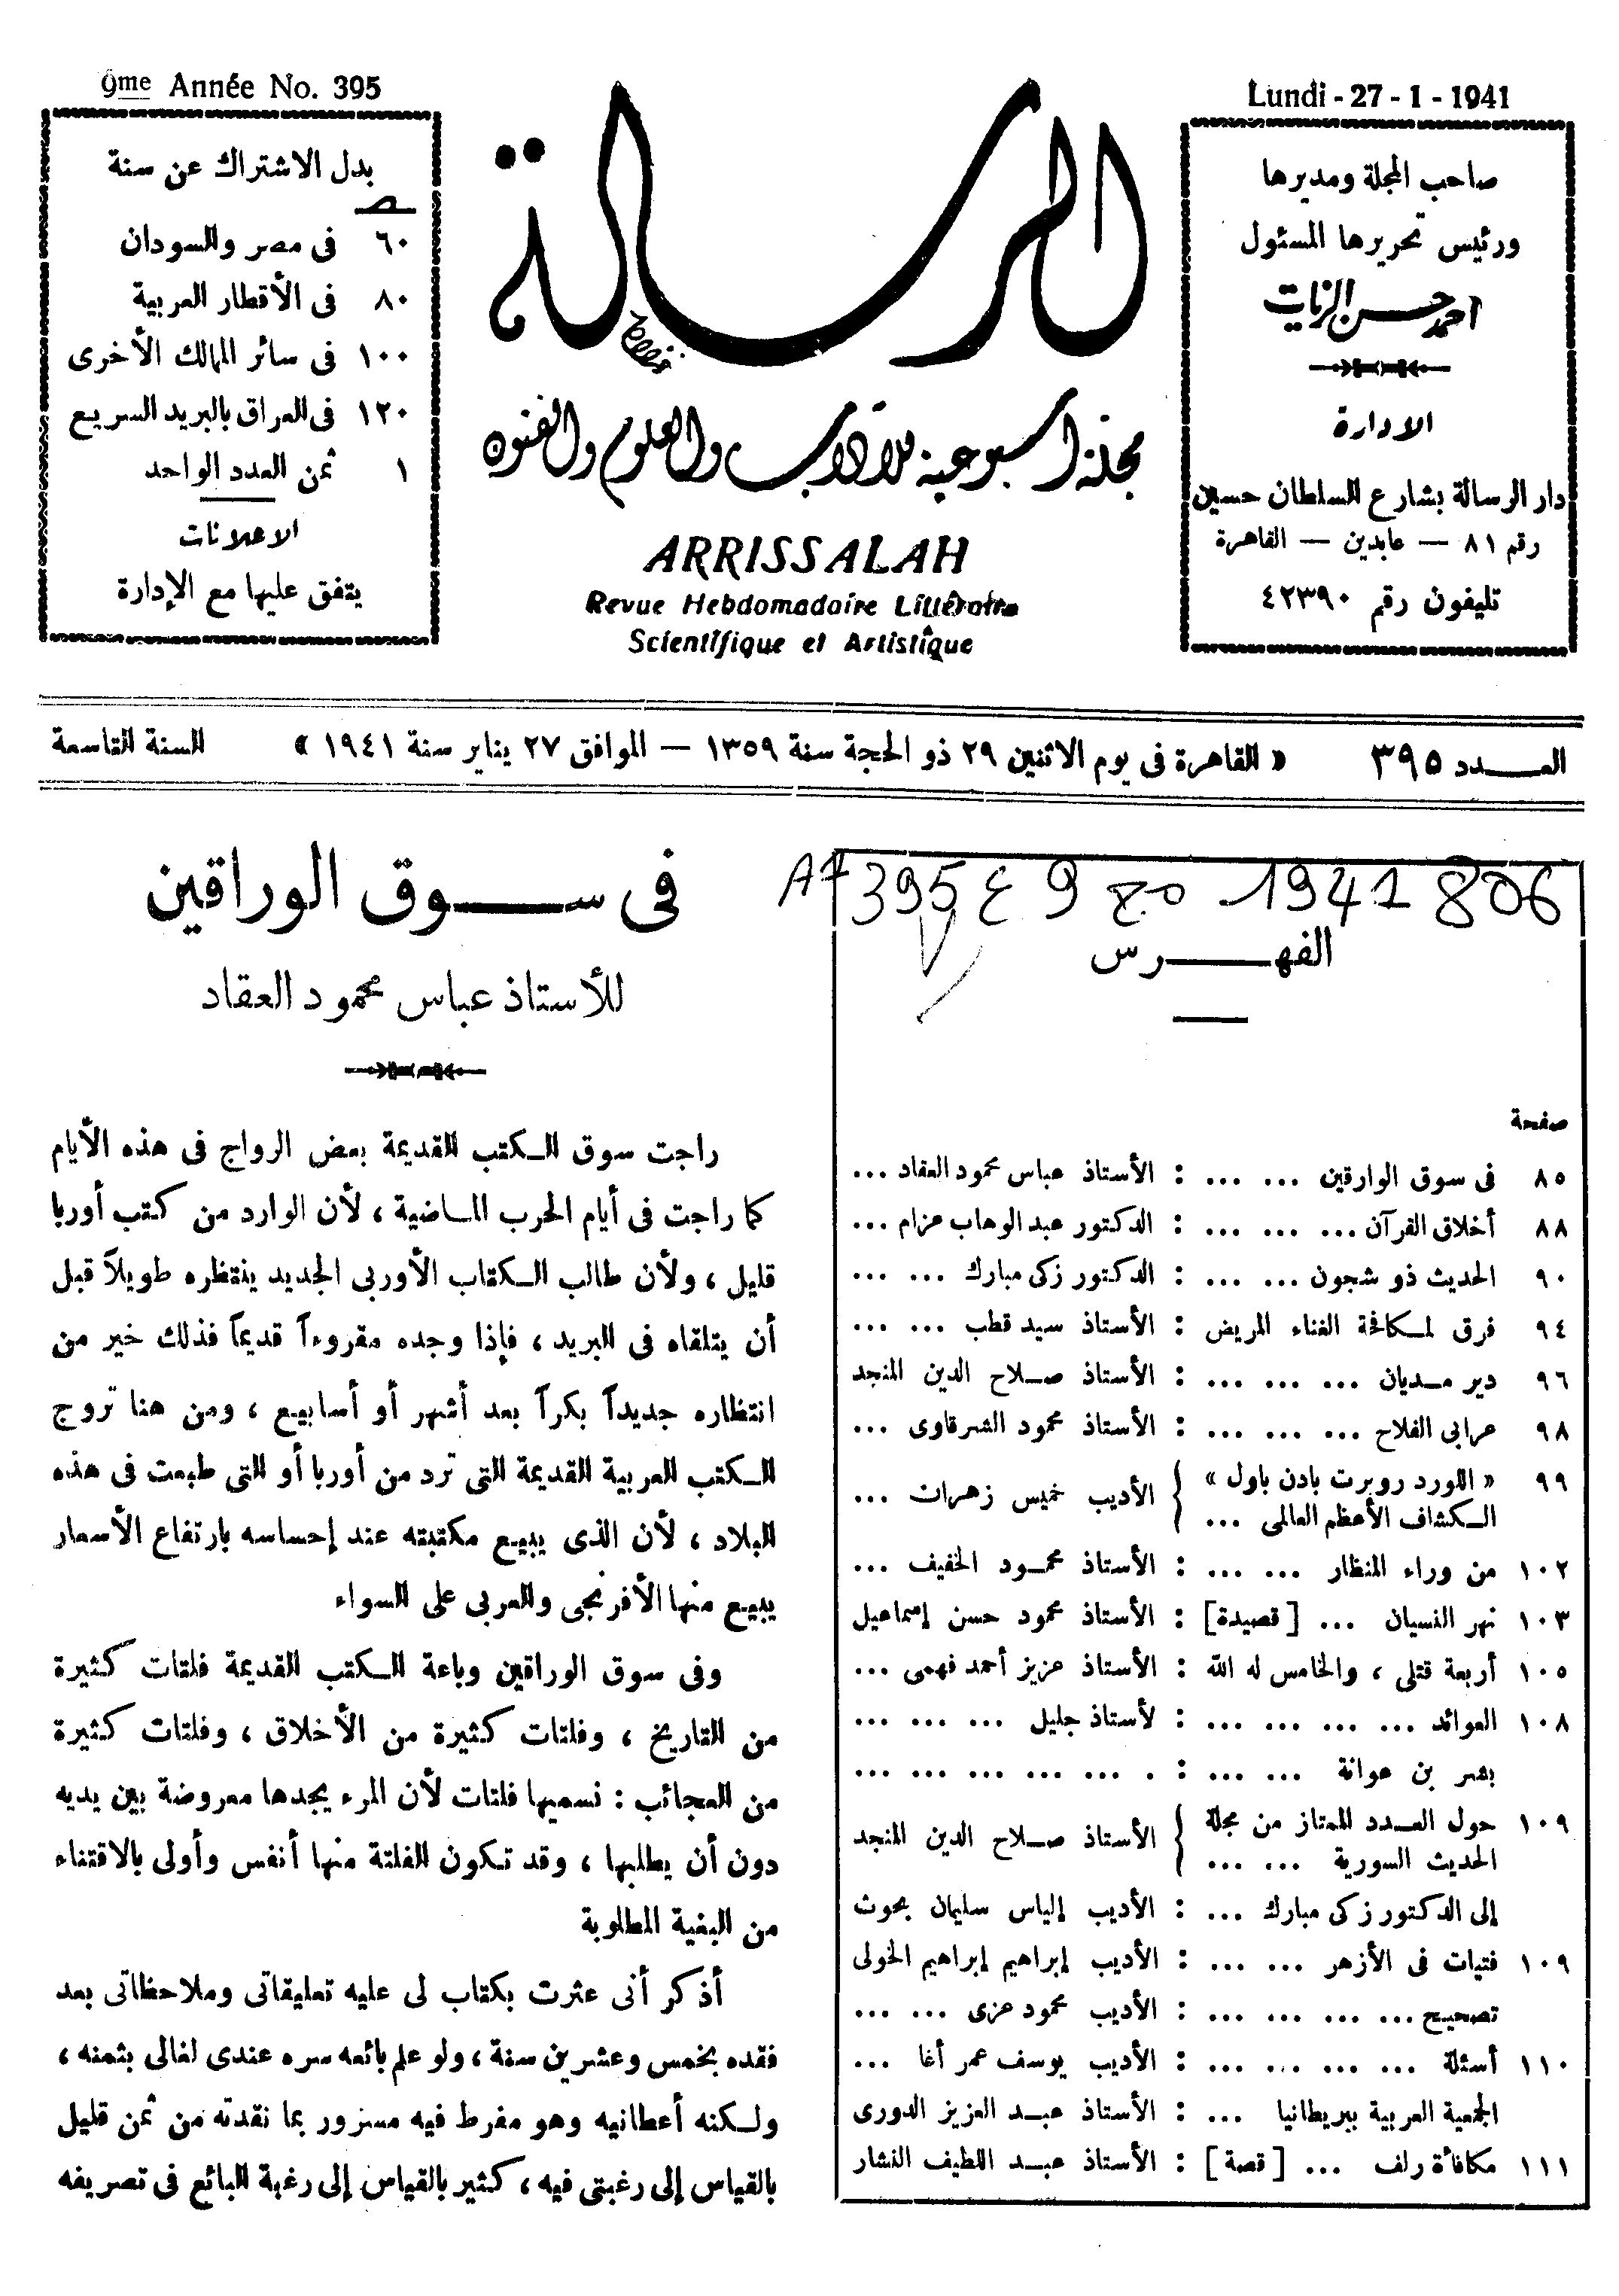 9me Année No. 395
Lundi - 27 - 1 - 1941
صاحب المجلة ومديرها
ورئيس تحريرها المسئول
احمد حسن الزيات
الادارة
دار الرسالة بشارع السلطان حسين
رقم ٨١ — عابدين — القاهرة
تليفون رقم ٤٢٣٩٠
الرسالة
مجلة أسبوعية للآداب والعلوم والفنون
ARRISSALAH
Revue Hebdomadaire Littéraire
Scientifique et Artistique
بدل الاشتراك عن سنة
ص
٦٠ فى مصر والسودان
٨٠ فى الأقطار العربية
١٠٠ فى سائر الممالك الأخرى
١٢٠ فى العراق بالبريد السريع
١ ثمن العدد الواحد
الاعلانات
يتفق عليها مع الإدارة
العـــدد ٣٩٥ « القاهرة فى يوم الاثنين ٢٩ ذو الحجة سنة ١٣٥٩ — الموافق ٢٧ يناير سنة ١٩٤١ » السنة التاسعة
A7 395 ع 9 مج - 1941 806
الفهـــرس
صفحة
٨٥ فى سوق الوارقين ... ... : الأستاذ عباس محمود العقاد ...
٨٨ أخلاق القرآن ... ... ... : الدكتور عبد الوهاب عزام ...
٩٠ الحديث ذو شجون ... ... : الدكتور زكى مبارك ... ...
٩٤ فرق لمكافحة الغناء المريض : الأستاذ سيد قطب ... ...
٩٦ دير مـديان ... ... ... : الأستاذ صـلاح الدين المنجد
٩٨ عرابى الفلاح ... ... ... : الأستاذ محمود الشرقاوى ...
٩٩ « اللورد روبرت بادن باول » } الأديب خميس زهران ...
الـكشاف الأعظم العالمى ...
١٠٢ من وراء المنظار ... ... : الأستاذ محمـود الخفيف ...
١٠٣ نهر النسيان ... [ قصيدة ] : الأستاذ محمود حسن إسماعيل
١٠٥ أربعة قتلى ، والخامس له الله : الأستاذ عزيز أحمد فهمى ...
١٠٨ العوائد ... ... ... ... : لأستاذ جليل ... ... ...
بشر بن عوانة ... ... : . ... ... ... ... ...
١٠٩ حول العـدد الممتاز من مجلة } الأستاذ صـلاح الدين المنجد
الحديث السورية ... ...
إلى الدكتور زكى مبارك ... : الأديب إلياس سليمان بحوث
١٠٩ فتيات فى الأزهر ... ... : الأديب إبراهيم إبراهيم الخولى
تصحيح ... ... ... ... : الأديب محمود عزى ... ...
١١٠ أسئلة ... ... ... ... : الأديب يوسف عمر أغا ...
الجمعية العربية ببريطانيا ... : الأستاذ عبـد العزيز الدورى
١١١ مكافأة رلف ... [ قصة ] : الأستاذ عبـد اللطيف النشار
فى ســـوق الوراقين
للأستاذ عباس محمود العقاد
راجت سوق الـكتب القديمة بعض الرواج فى هذه الأيام
كما راجت فى أيام الحرب المـاضية ، لأن الوارد من كتب أوربا
قليل ، ولأن طالب الـكتاب الأوربى الجديد ينتظره طويلاً قبل
أن يتلقاه فى البريد ، فإذا وجده مقروءاً قديماً فذلك خير من
انتظاره جديداً بكراً بعد أشهر أو أسابيع ، ومن هنا تروج
الـكتب العربية القديمة التى ترد من أوربا أو التى طبعت فى هذه
البلاد ، لأن الذى يبيع مكتبته عند إحساسه بارتفاع الأسعار
يبيع منها الأفرنجى والعربى على السواء
وفى سوق الوراقين وباعة الـكتب القديمة فلتات كثيرة
من التاريخ ، وفلتات كثيرة من الأخلاق ، وفلتات كثيرة
من العجائب : نسميها فلتات لأن المرء يجدها معروضة بين يديه
دون أن يطلبها ، وقد تكون الفلتة منها أنفس وأولى بالاقتناء
من البغية المطلوبة
أذكر أنى عثرت بكتاب لى عليه تعليقاتى وملاحظاتى بعد
فقده بخمس وعشرين سنة ، ولو علم بائعه سره عندى لغالى بثمنه ،
ولـكنه أعطانيه وهو مفرط فيه مسرور بما نقدته من ثمن قليل
بالقياس إلى رغبتى فيه ، كثير بالقياس إلى رغبة البائع فى تصريفه